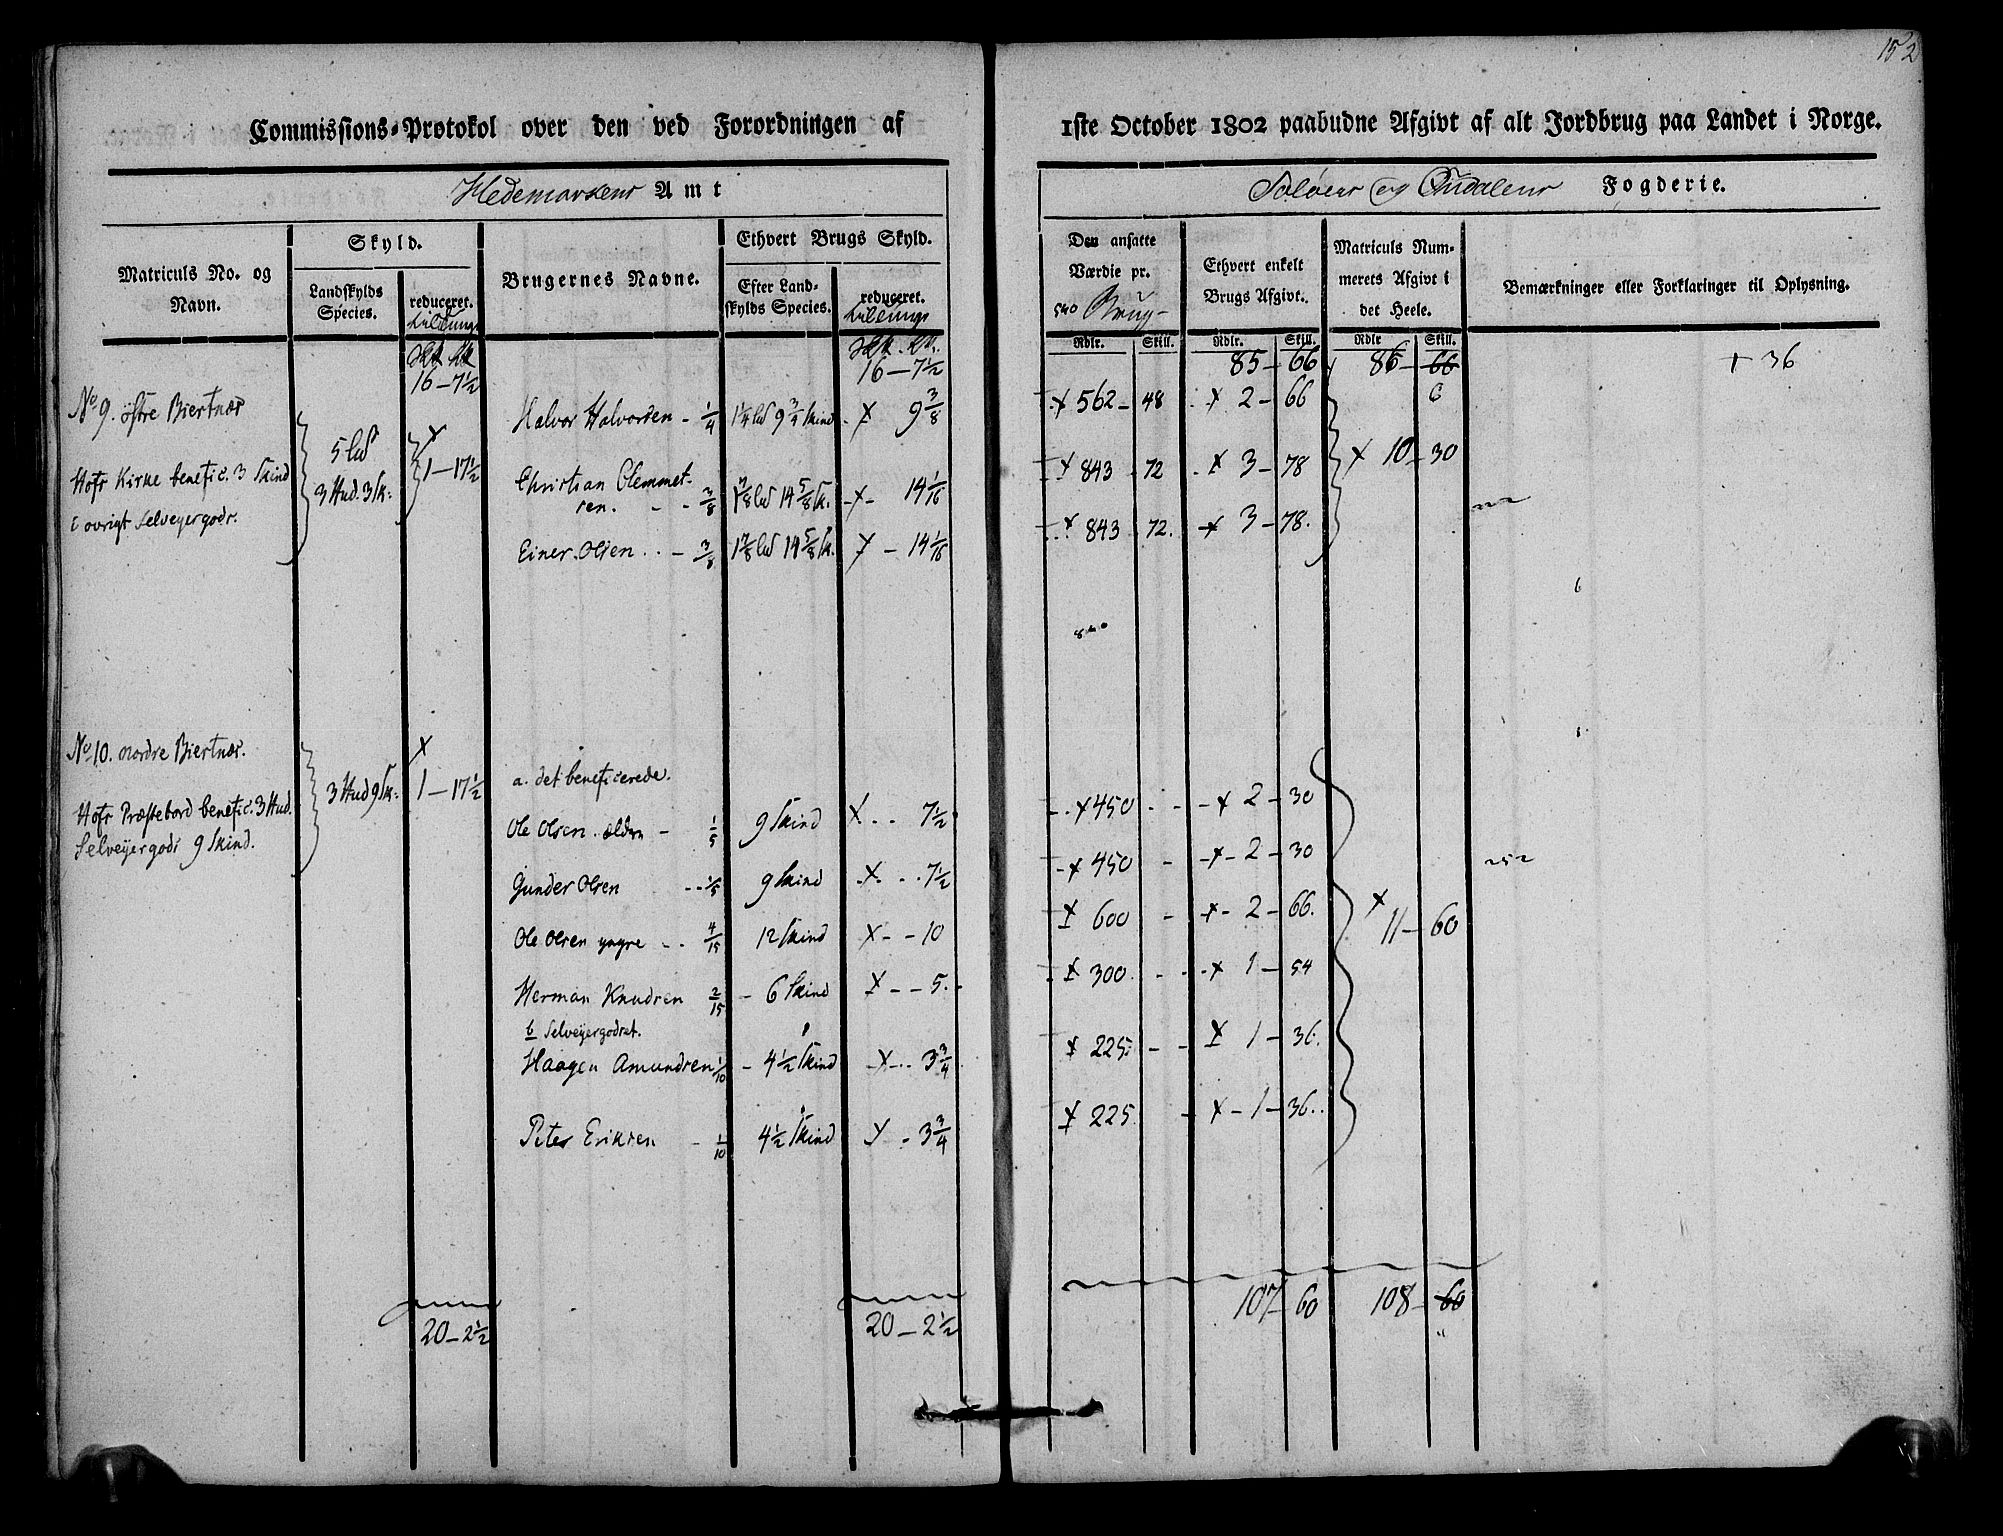 152
Commissions-Protokol over den ved Forordningen af 1ste October 1802 paabudne Afgivt af alt Jordbrug paa Landet i Norge.
Hedemarkens Amt
Soløers og Fogderie.
Matriculs No. og Navn.
Skyld.
Landskylds Species.
reduceret.
Brugernes Navne.
Ethvert Brugs Skyld.
Efter Landskylds Species.
reduceret.
Den ansatte Værdie pr.
Brug
Ethvert enkelt Brugs Afgivt.
Matriculs Nummerets Afgivt i det Heele.
Bemærkninger eller Forklaringer til Oplysning.
Rdlr. Skill. Rdlr. Skill. Rdlr Skill.
16–7½ 16–7½ 85–66 86–66 + 36
6
No 9. østre Biertnæs
Hofs Kirke benefic. 3 Skind
i øvrigt Selveyergods.
5 lad
3 Hud. 3 Sk:
1–17½
Halvor Halvorsen – 1/4 1¼ lad 9¾ Skind x 9 3/8 x 562– 48 x 2– 66
Christian Clemmet-
sen. – – 3/8 1 7/8 lad 14 5/8 Sk. x– 14 1/16 x 843 – 72 x 3– 78 x 10– 30
Einer Olsen . . – 3/8 1 7/8 lad 14 5/8 Sk. x – 14 1/16 x 843 72. x 3– 78.
No 10. nordre Biertnæs.
Hofs Præstebord benefic. 3 Hud.
Selveyergods 9 Skind.
3 Hud 9 Sk:
x
1–17½
a. det beneficerede.
Ole Olsen ældre – 1/5 9 Skind x . . 7½ x 450 – – x 2– 30
Gunder Olsen – – 1/5 9 Skind x . . 7½ x 450 – x– 2– 30
Ole Olsen yngre – . 4/15 12 Skind x – – 10 x 600 – x– 2– 66. x 11– 60
Herman Knudsen 2/15 – 6 Skind x – – 5. x 300 . . x 1– 54
b Selveyergodset.
Haagen Amundsen 1/10 – 4½ Skind x – . . 3¾ x 225 – – x 1– 36.
Peter Eriksen – 1/10 4½ Skind x . – 3¾ x 225 – x – 1– 36.
20–2½ 20–2½ 107–60 108–60
"